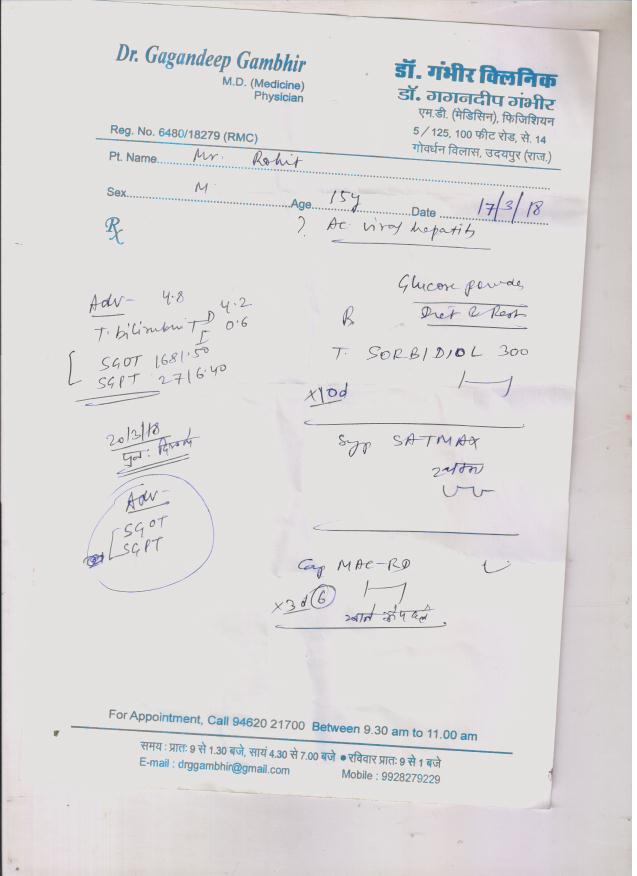 Dr. Gagandeep Gambhir
M.D. (Medicine)
Physician
Reg. No. 6480/18279 (RMC)
डॉ. गंभीर क्लिनिक
डॉ. गगनदीप गंभीर
एम.डी. (मेडिसिन), फिजिशियन
5 / 125, 100 फीट रोड, से. 14
गोवर्धन विलास, उदयपुर (राज.)
Pt. Name Mr. Rohit
Sex M Age 15y Date 17/3/18
Rx
? Ac viral hepatitis
Adv- 4.8
T. bilirubin T D 4.2
I 0.6
SGOT 1681.50
SGPT 2716.40
20/3/18
पुनः दिखावें
Adv-
SGOT
SGPT
Glucose powder
Diet & Rest
R
T. SORBIDIOL 300
x10d
Syp SATMAX
Cap MAC-RD
x3d 6
For Appointment, Call 94620 21700 Between 9.30 am to 11.00 am
समय : प्रातः 9 से 1.30 बजे, सायं 4.30 से 7.00 बजे ● रविवार प्रातः 9 से 1 बजे
E-mail : drggambhir@gmail.com Mobile : 9928279229